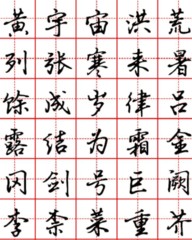 黄宇宙洪荒
列张寒来暑
馀成岁律吕
露结为霜金
冈剑号巨阙
李柰菜重芥